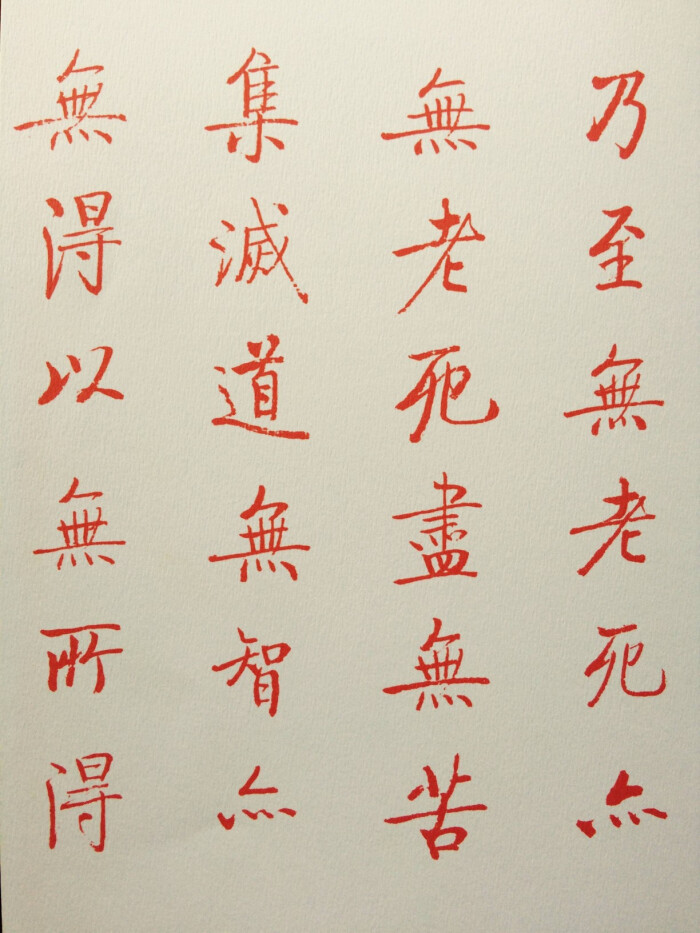 乃至無老死亦
無老死盡無苦
集滅道無智亦
無得以無所得